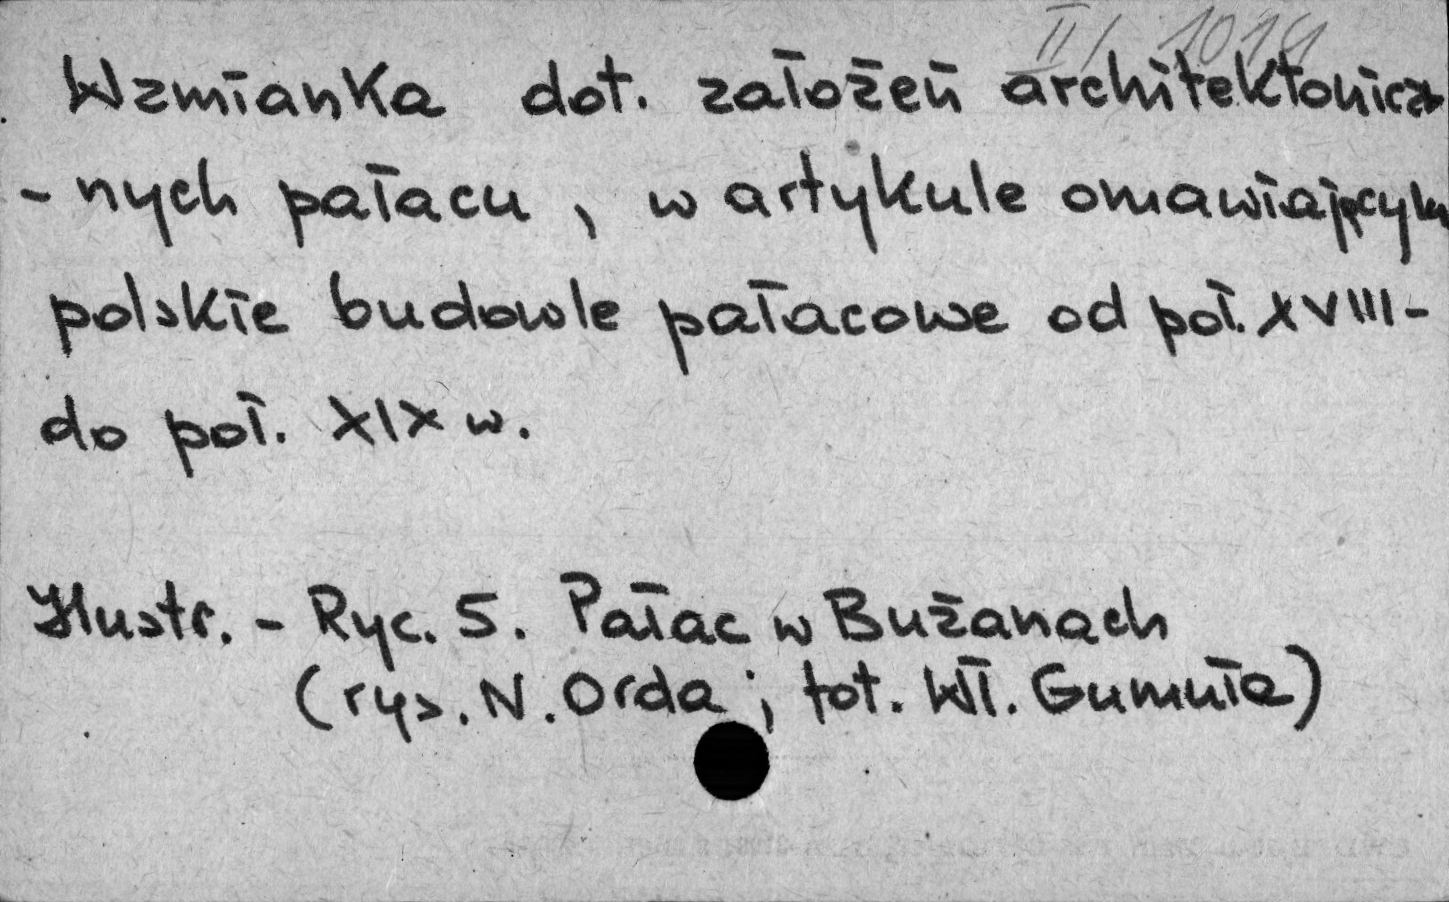 II/1014
Wzmianka dot. założeń architektonicz
- nych pałacu, w artykule omawiającym
polskie budowle pałacowe od poł. XVIII-
do poł. XIX w.
Ilustr. - Ryc. 5. Pałac w Bużanach
(rys. N. Orda; fot. Wł. Gumuła)